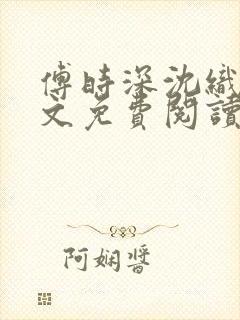 傅時深沈織
文免費閱讀
阿嫻醬